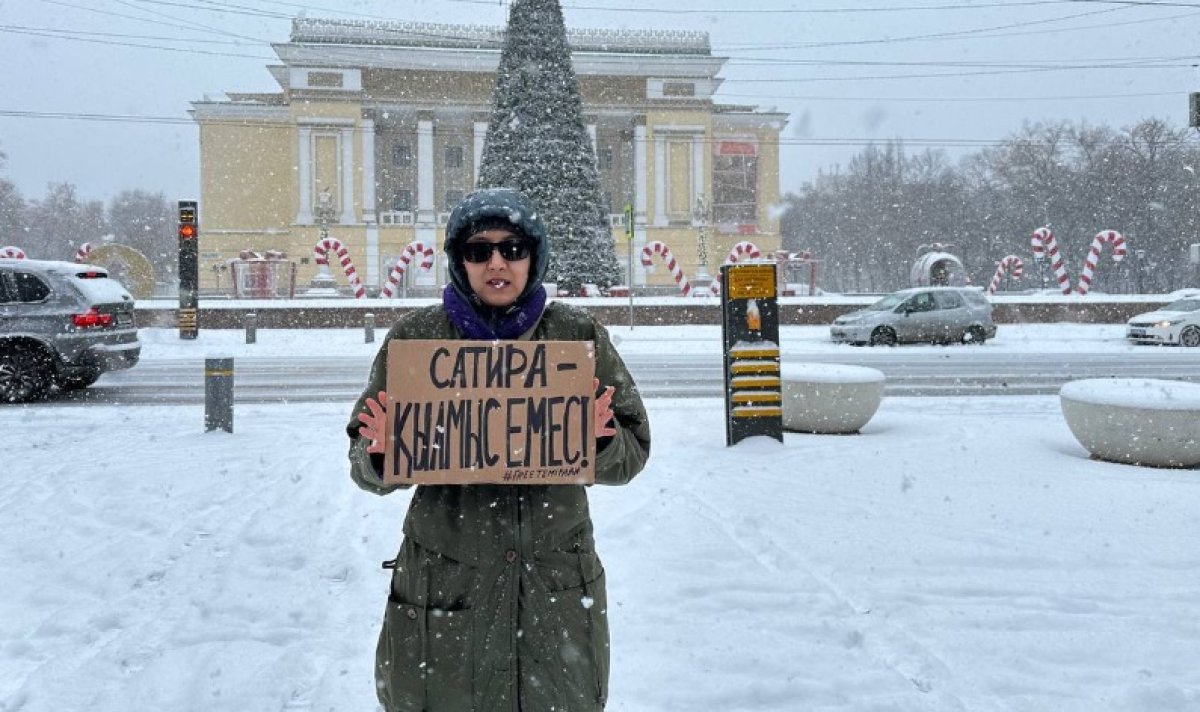 САТИРА –
ҚЫЛМЫС ЕМЕС!
#FREETEMIRLAN